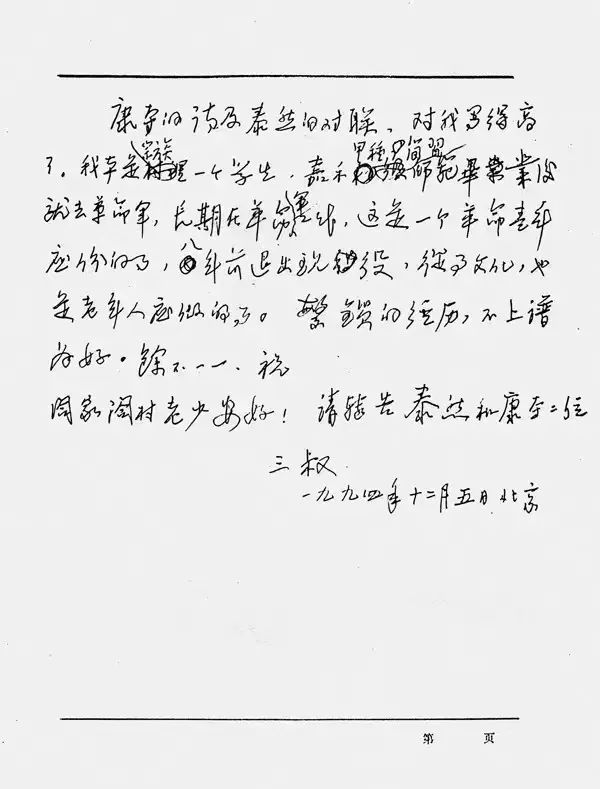 康的诗及泰然的对联,对我写得高
了。我本是宗族一个学生,嘉禾甲種简習師範畢業后
就去革命军,长期在革命,这是一个革命青年
应份的事,八年前退出现役,從事文化,也
是老年人应做的事。繁鎖的经历,不上譜
为好。馀不一一,祝
阖家阖村老少安好!请转告泰然和康二位
三叔
一九九四年十二月五日北京
第 页